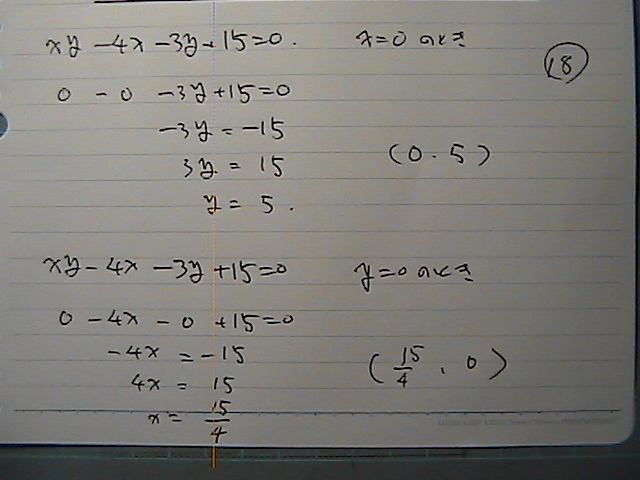 xy - 4x - 3y + 15 = 0 .  x = 0 のとき
18
0 - 0 - 3y + 15 = 0
-3y = -15
(0 . 5)
3y = 15
y = 5 .
xy - 4x - 3y + 15 = 0  y = 0 のとき
0 - 4x - 0 + 15 = 0
-4x = -15
(15/4 . 0)
4x = 15
x = 15/4